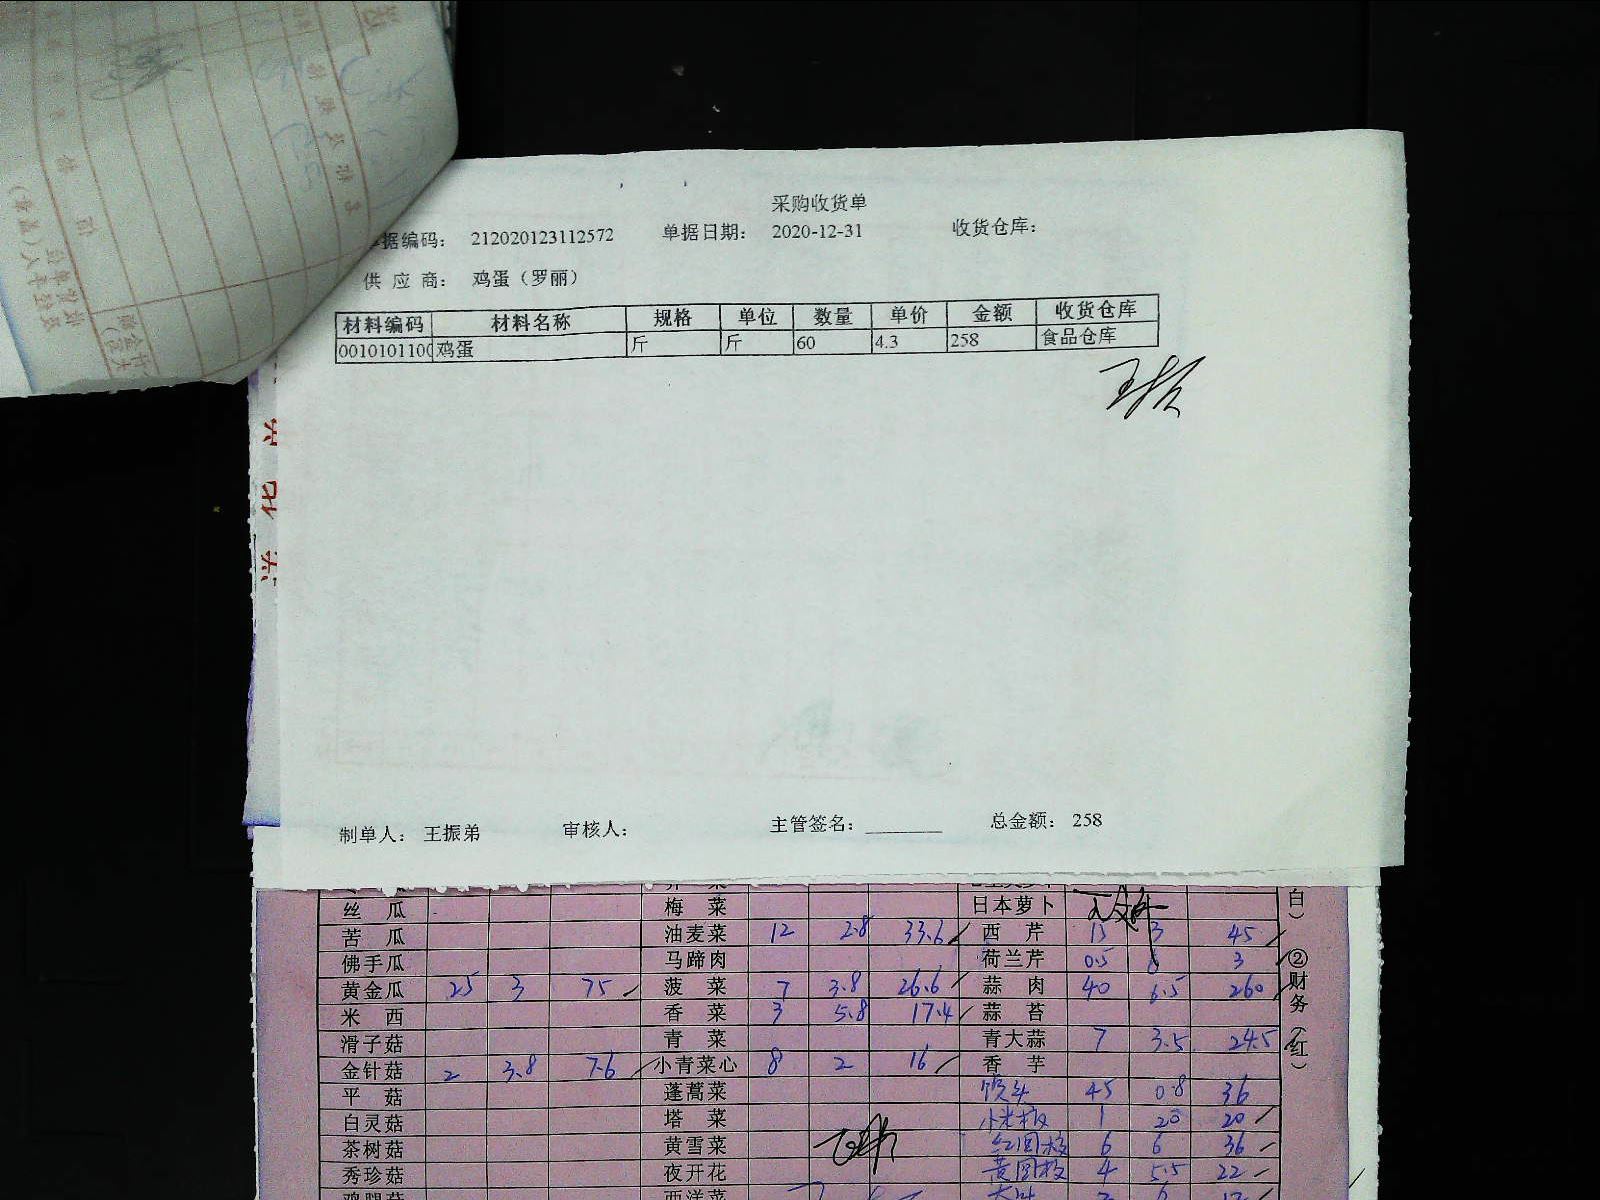 采购收货单
据编码： 212020123112572 单据日期： 2020-12-31 收货仓库：
供 应 商： 鸡蛋（罗丽）
材料编码 材料名称 规格 单位 数量 单价 金额 收货仓库
0010101100 鸡蛋 斤 斤 60 4.3 258 食品仓库
制单人： 王振弟 审核人： 主管签名：_______ 总金额： 258
丝 瓜 梅 菜 日本萝卜
苦 瓜 油麦菜 12 2.8 33.6 西 芹 15 3 45
佛手瓜 马蹄肉 荷兰芹 0.5 6 3
黄金瓜 25 3 75 菠 菜 7 3.8 26.6 蒜 肉 40 6.5 260
米 西 香 菜 3 5.8 17.4 蒜 苔
滑子菇 青 菜 青大蒜 7 3.5 24.5
金针菇 2 3.8 7.6 小青菜心 8 2 16 香 芋
平 菇 蓬蒿菜 馒头 45 0.8 36
白灵菇 塔 菜 1 20 20
茶树菇 黄雪菜 红圆椒 6 6 36
秀珍菇 夜开花 黄圆椒 4 5.5 22
鸡腿菇 西洋菜
白）
②财务（红）